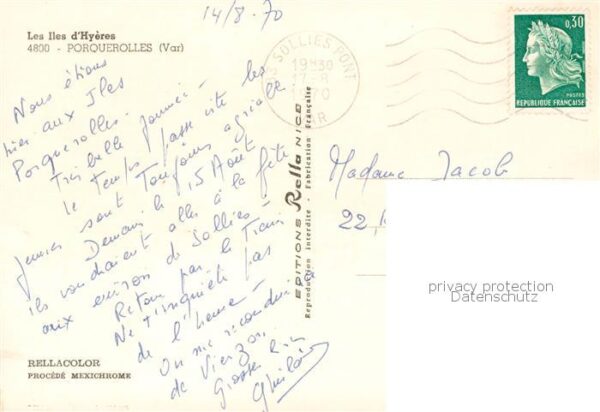 14/8.70
Les Iles d'Hyères
4800 - PORQUEROLLES (Var)
Nous étions
hier aux Iles
Porquerolles.
Très belle journée -
le temps passe vite les
jeunes sont toujours agréable
Demain le 15 Août
ils voudraient aller à la fête
aux environ de Sollies -
Retour par le Train
Ne t'inquiète pas
de l'heure -
On me reconduira
de Vierzon.
RELLACOLOR
PROCÉDÉ MEXICHROME
EDITIONS Rella NICE
Reproduction interdite - Fabrication française
SOLLIES PONT
19H30
17-8
VAR
0,30
POSTES
REPUBLIQUE FRANÇAISE
Madame Jacob
22,
privacy protection
Datenschutz